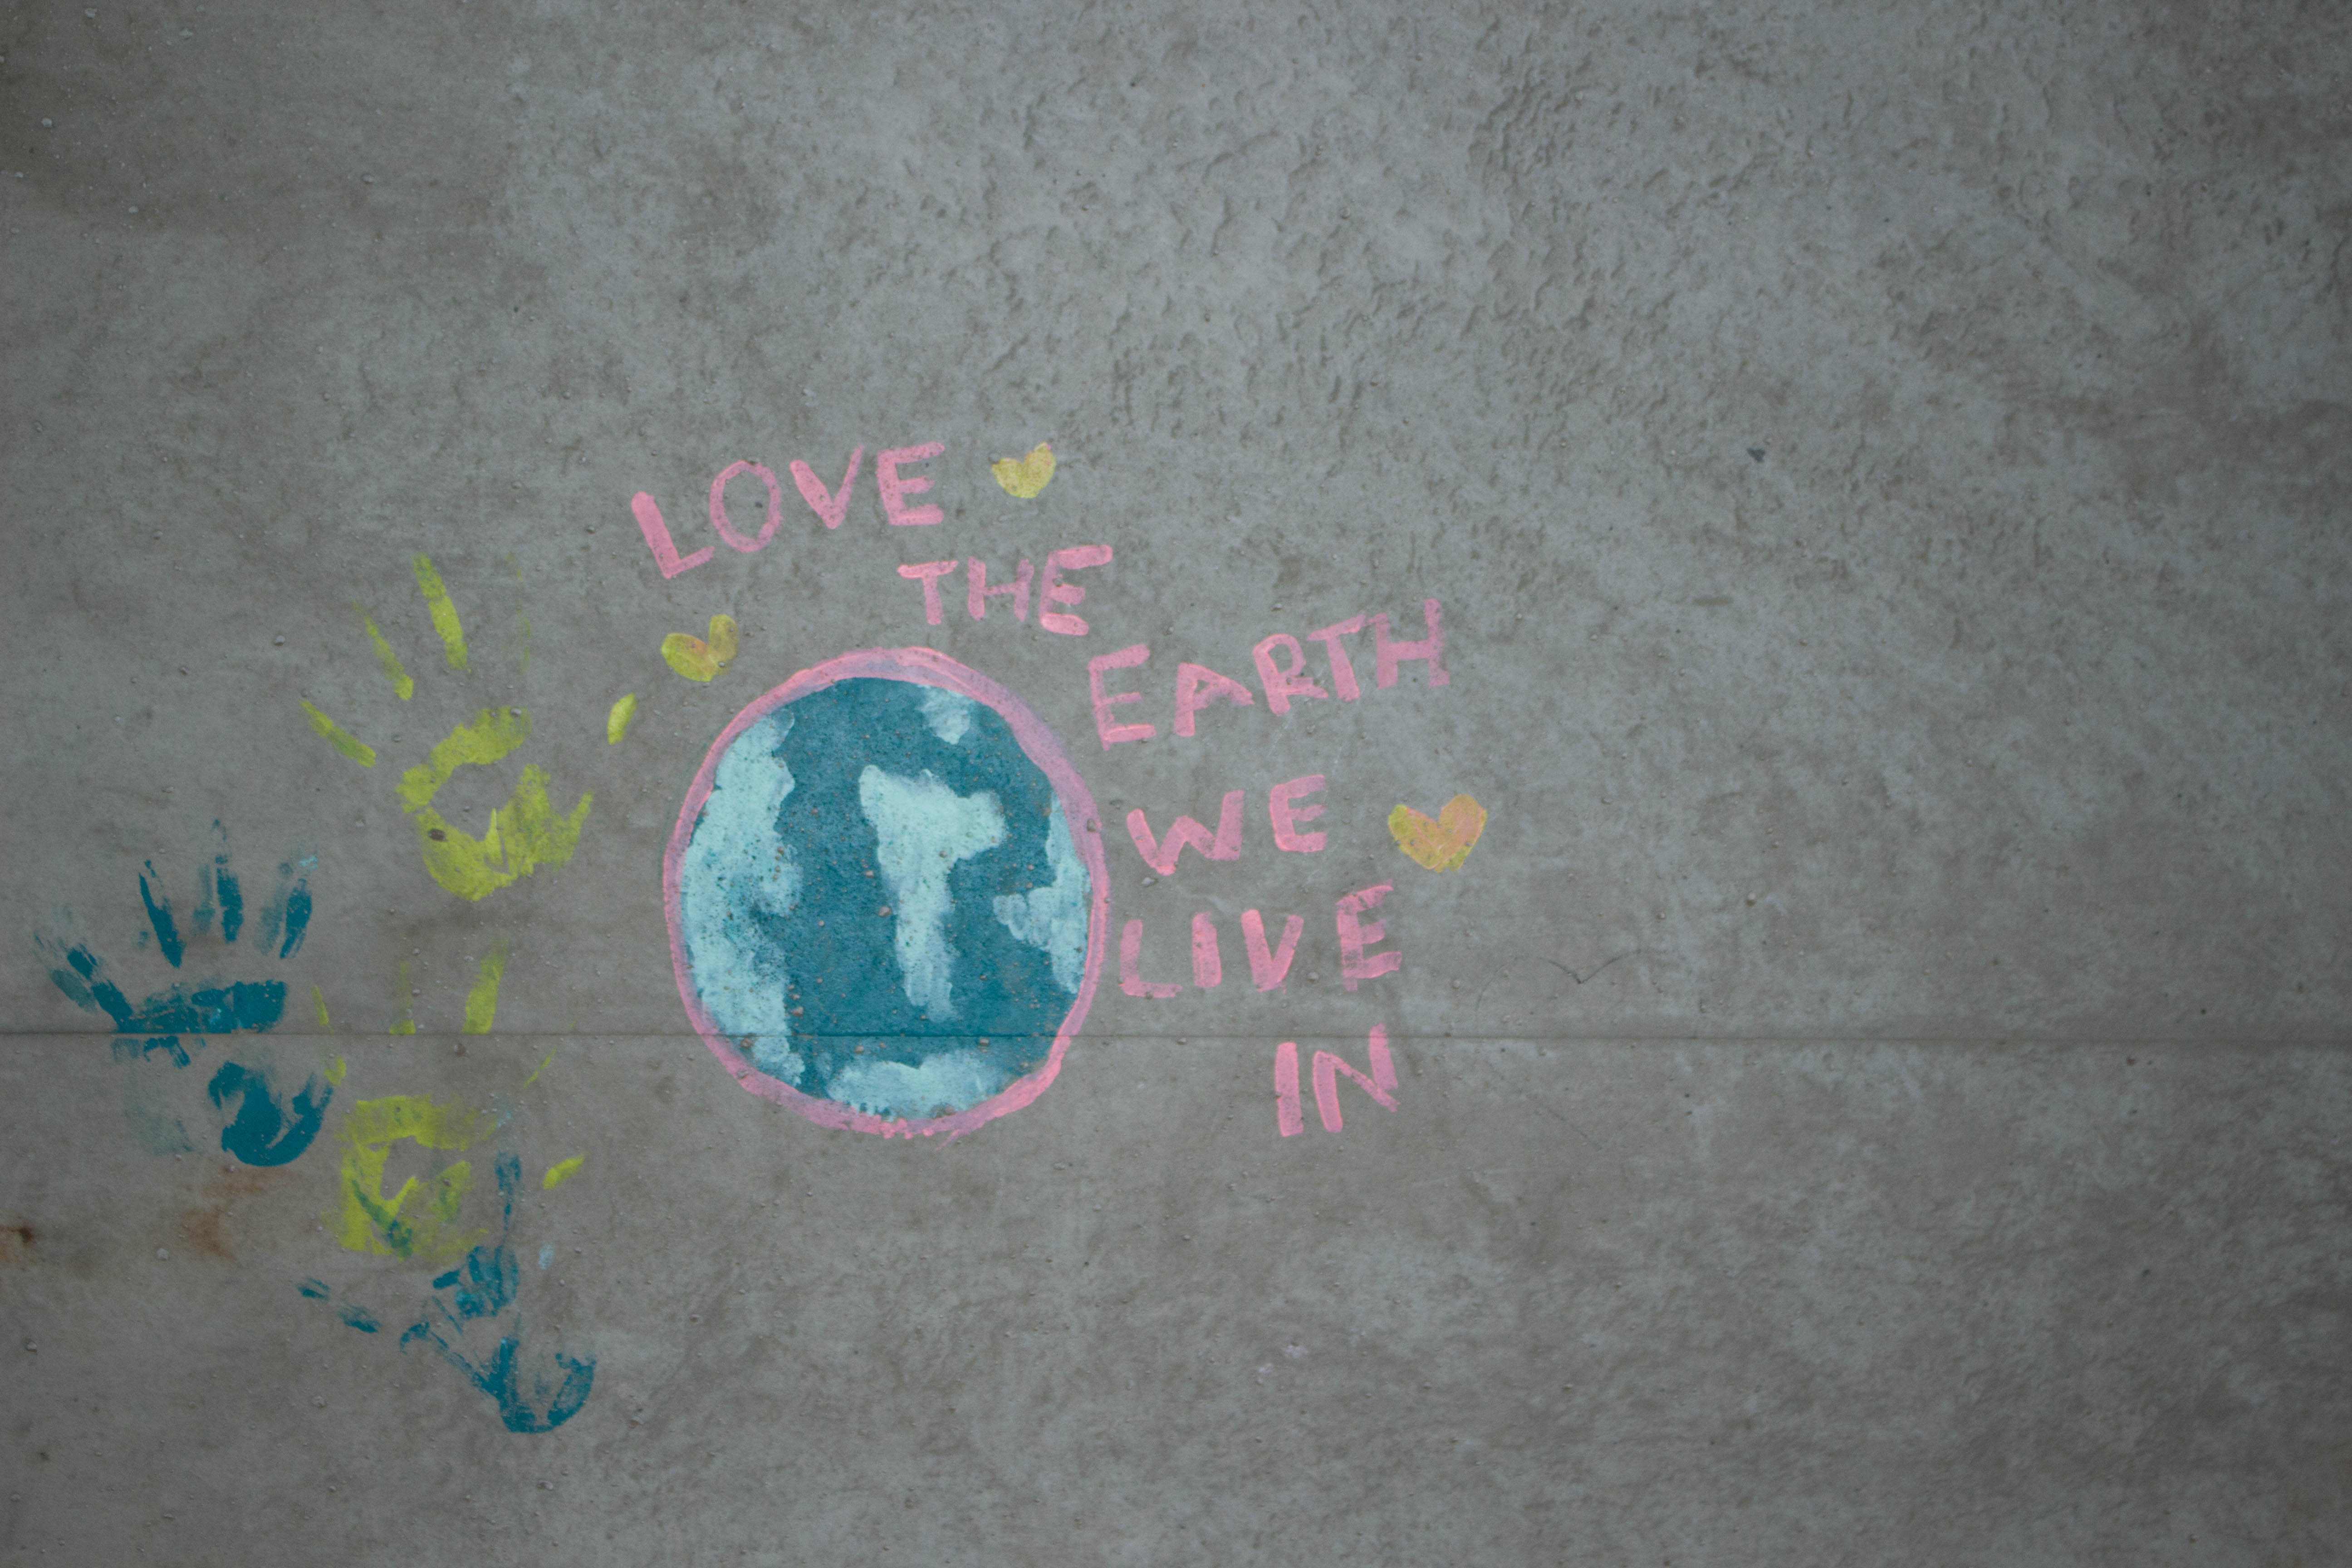 LOVE
THE
EARTH
WE
LIVE
IN